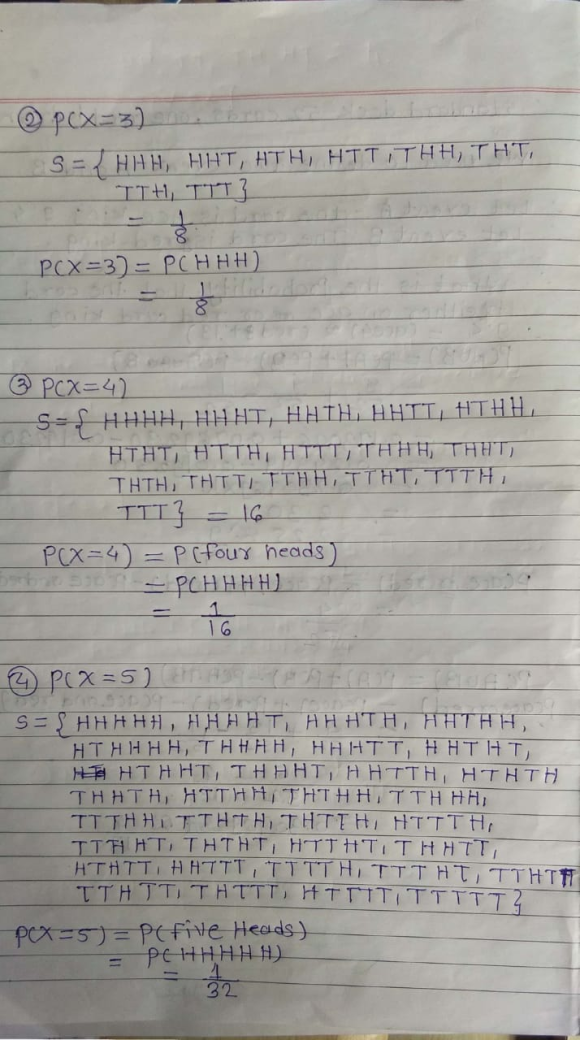 ② P(X=3)
S = { HHH, HHT, HTH, HTT, THH, THT,
TTH, TTT}
= 1/8
P(X=3) = P(HHH)
= 1/8
③ P(X=4)
S = { HHHH, HHHT, HHTH, HHTT, HTHH,
HTHT, HTTH, HTTT, THHH, THHT,
THTH, THTT, TTHH, TTHT, TTTH,
TTT} = 16
P(X=4) = P(four heads)
= P(HHHH)
= 1/16
④ P(X=5)
S = { HHHHH, HHHHT, HHHTH, HHTHH,
HTHHHH, THHHH, HHHTT, HHTHT,
HTHHT, THHHT, HHTTH, HTHTH
THHTH, HTTHH, THTHH, TTHHH,
TTTHH, TTHTH, THTTH, HTTTH,
TTTHHT, THTHT, HTTHT, THHTT,
HTHTT, HHTTT, TTTTH, TTTHT,
TTHTT, THTTT, HTTTT, TTTTT}
P(X=5) = P(five Heads)
= P(HHHHH)
= 1/32